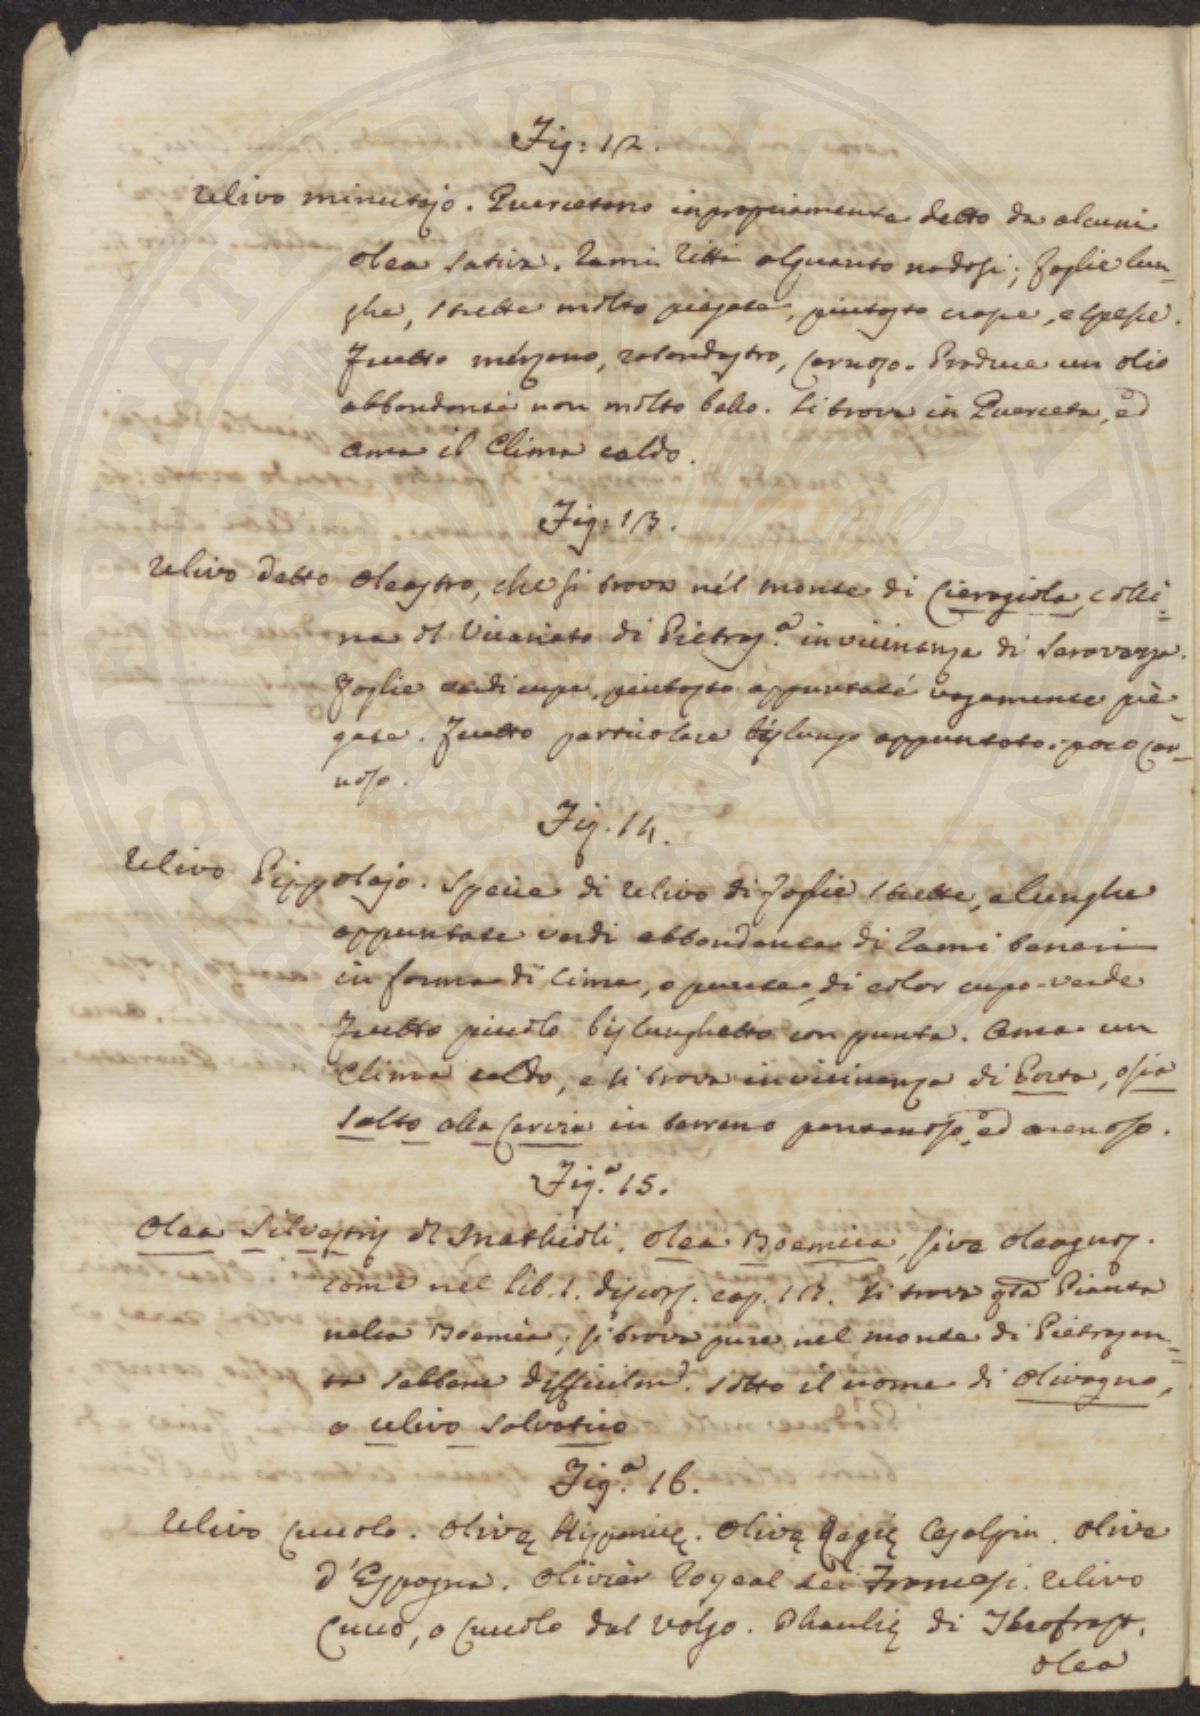 Fig: 12.
Ulivo minutajo. Quercetano inpropriamente detto da alcuni
olea sativa. Rami ritti alquanto nodosi; foglie lun=
ghe, strette molto piegate, piutosto crespe, e spesse.
Frutto mezzano, rotondastro, carnoso. Produce un olio
abbondante non molto bello. Si trova in Querceta, ed
ama il Clima caldo.
Fig: 13.
Ulivo detto oleastro, che si trova nel monte di Cieragiola, colli=
na del Vicariato di Pietras.a in vicinanza di Seravezza.
Foglie verdi cupe, piutosto appuntate vagamente pie=
gate. Frutto particolare bislungo appuntato: poco car=
noso.
Fig. 14.
Ulivo Pippolajo. Specie di Ulivo di foglie strette, e lunghe
appuntate verdi abbondante di Rami teneri
in forma di cima, o punta, di color cupo-verde
Frutto piccolo bislunghetto con punta. Ama un
Clima caldo, e si trova in vicinanza di Porta, osia
Salto alla Cervia in terreno pantanoso, ed arenoso.
Fig.a 15.
Olea Silvestris del Mathioli. Olea Boemica, sive oleagnos.
come nel lib. 1. discors. cap. 13. Si trova qta Pianta
nella Boemia; si trova pure nel monte di Pietrasan=
ta sebbene difficilme. sotto il nome di olivagno,
o ulivo salvatico
Fig.a 16.
Ulivo Cuccolo. Olivę Hispanicę. Olivę Regię Cesalpin. olive
d'Espagna. Olivièr Royeal dei Francesi. Ulivo
Cucco, o Cuccolo dal volgo. Phaulię di Theofrast.
olea